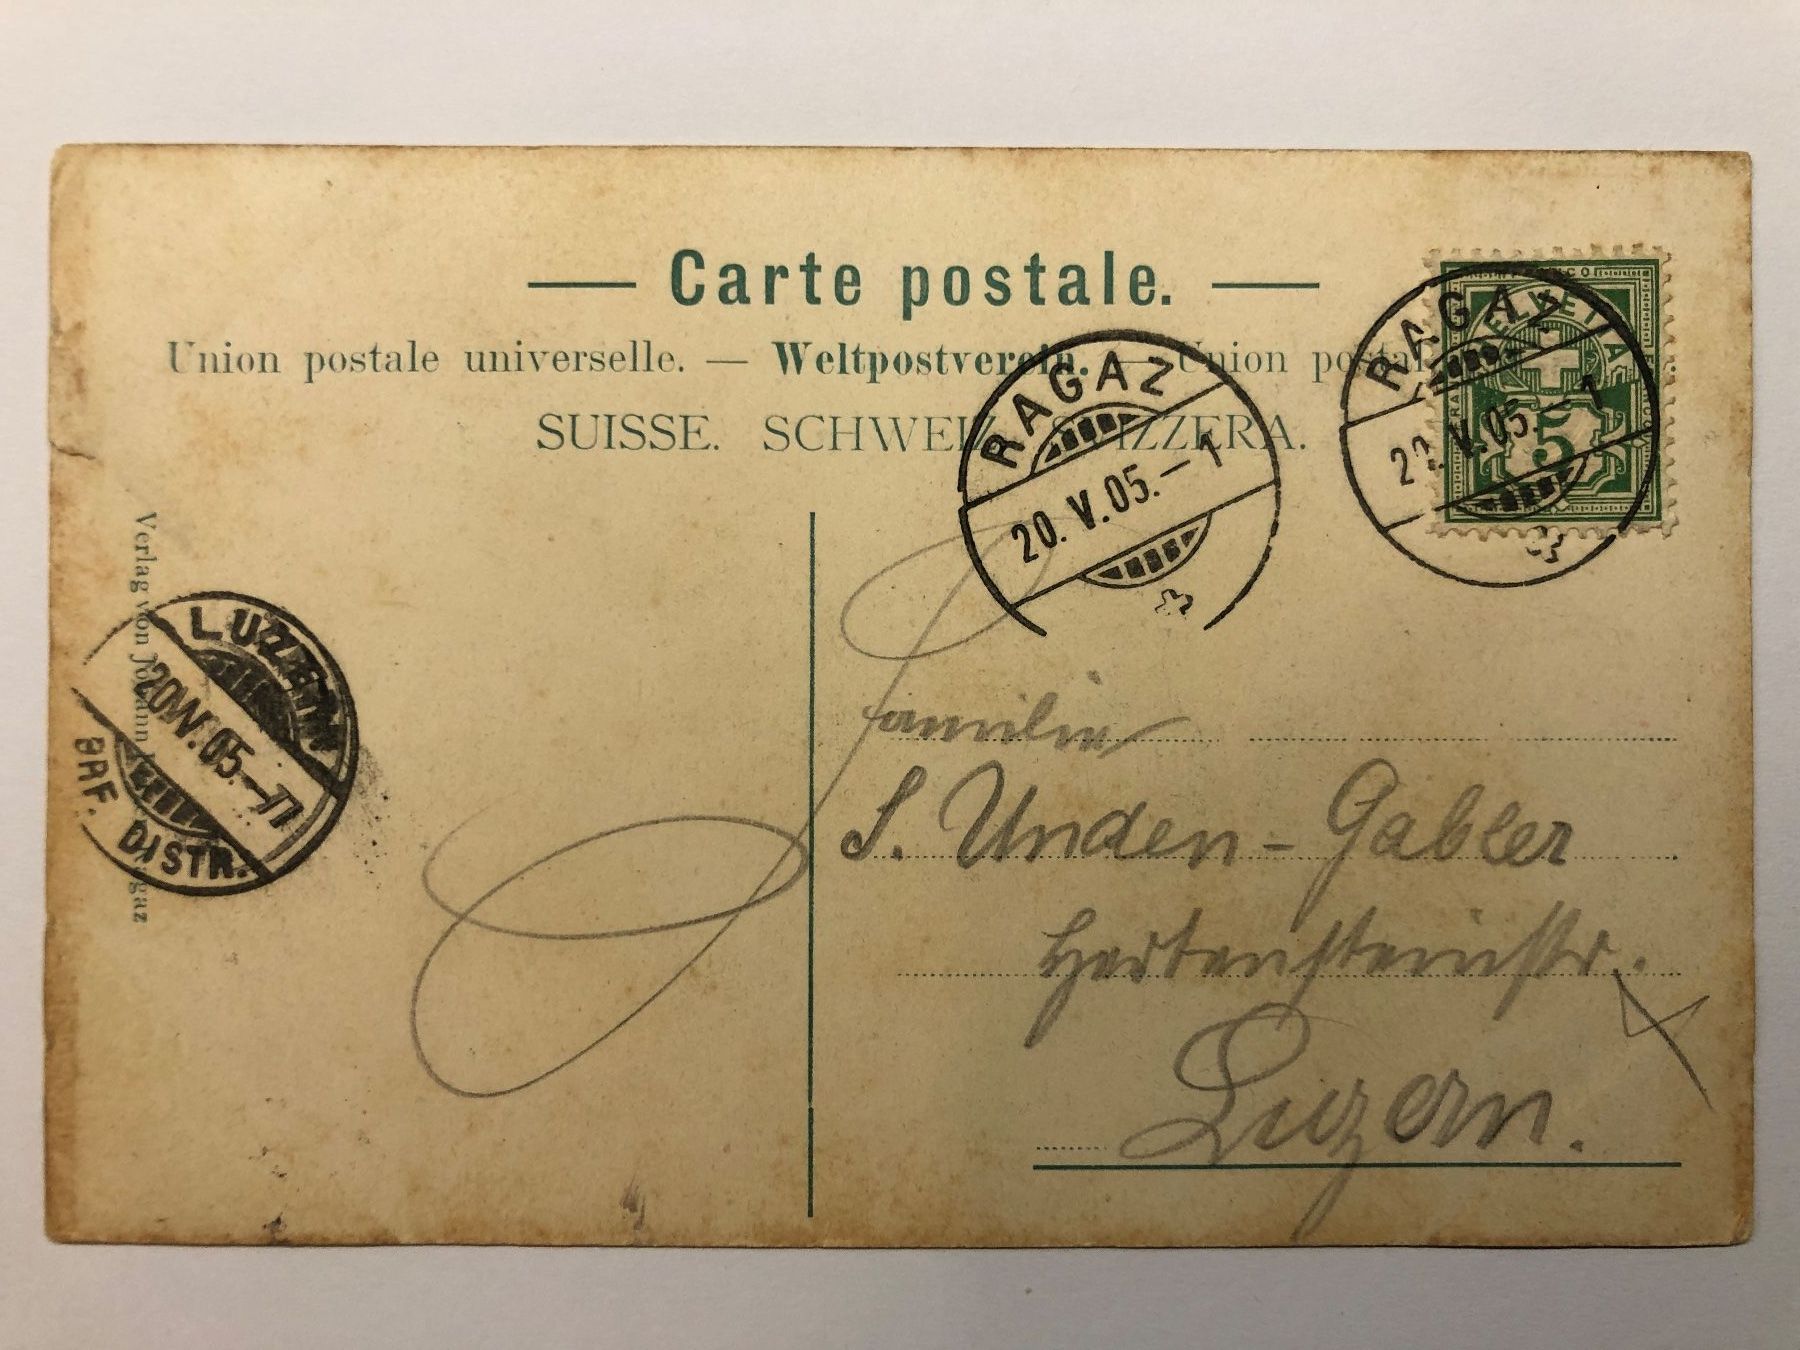 Carte postale.
Union postale universelle. — Weltpostverein. — Union postale
SUISSE. SCHWEIZ. SVIZZERA.
RAGAZ
20. V. 05. — 1
RAGAZ
20. V. 05. — 1
FRANCO
HELVETIA
5
Verlag von Johann Ragaz
LUZERN
20. V. 05. —
BRF. DISTR.
Familie
S. Unden - Gabler
Hertensteinstr.
Luzern.